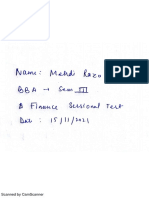 Name: Mehdi Raza
BBA → Sem III
B Finance Sessional Test
Date: 15/11/2021
Scanned by CamScanner